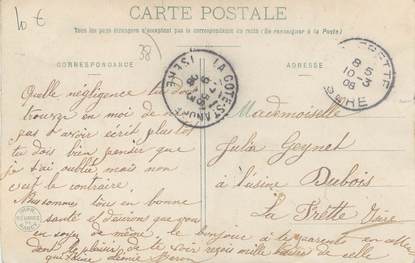 10 €
CARTE POSTALE
Tous les pays étrangers n'acceptent pas la correspondance au recto (Se renseigner à la Poste)
38
CORRESPONDANCE
ADRESSE
LA COTE-ST-ANDRÉ
ISÈRE
FRETTE
8 - 5
10 - 3
08
Quelle négligence
trouver en moi de ne
pas t'avoir écrit plus tôt
tu dois bien penser que
je t'ai oublié mais non
c'est le contraire.
Nous sommes tous en bonne
santé et désirons que vous
en soyez de même, le bonjour à tes parents en
dont le plaisir de te voir reçois mille baisers de celle
qui t'aime
Mademoiselle
Julia Geynet
à l'usine Dubois
La Frette Isère